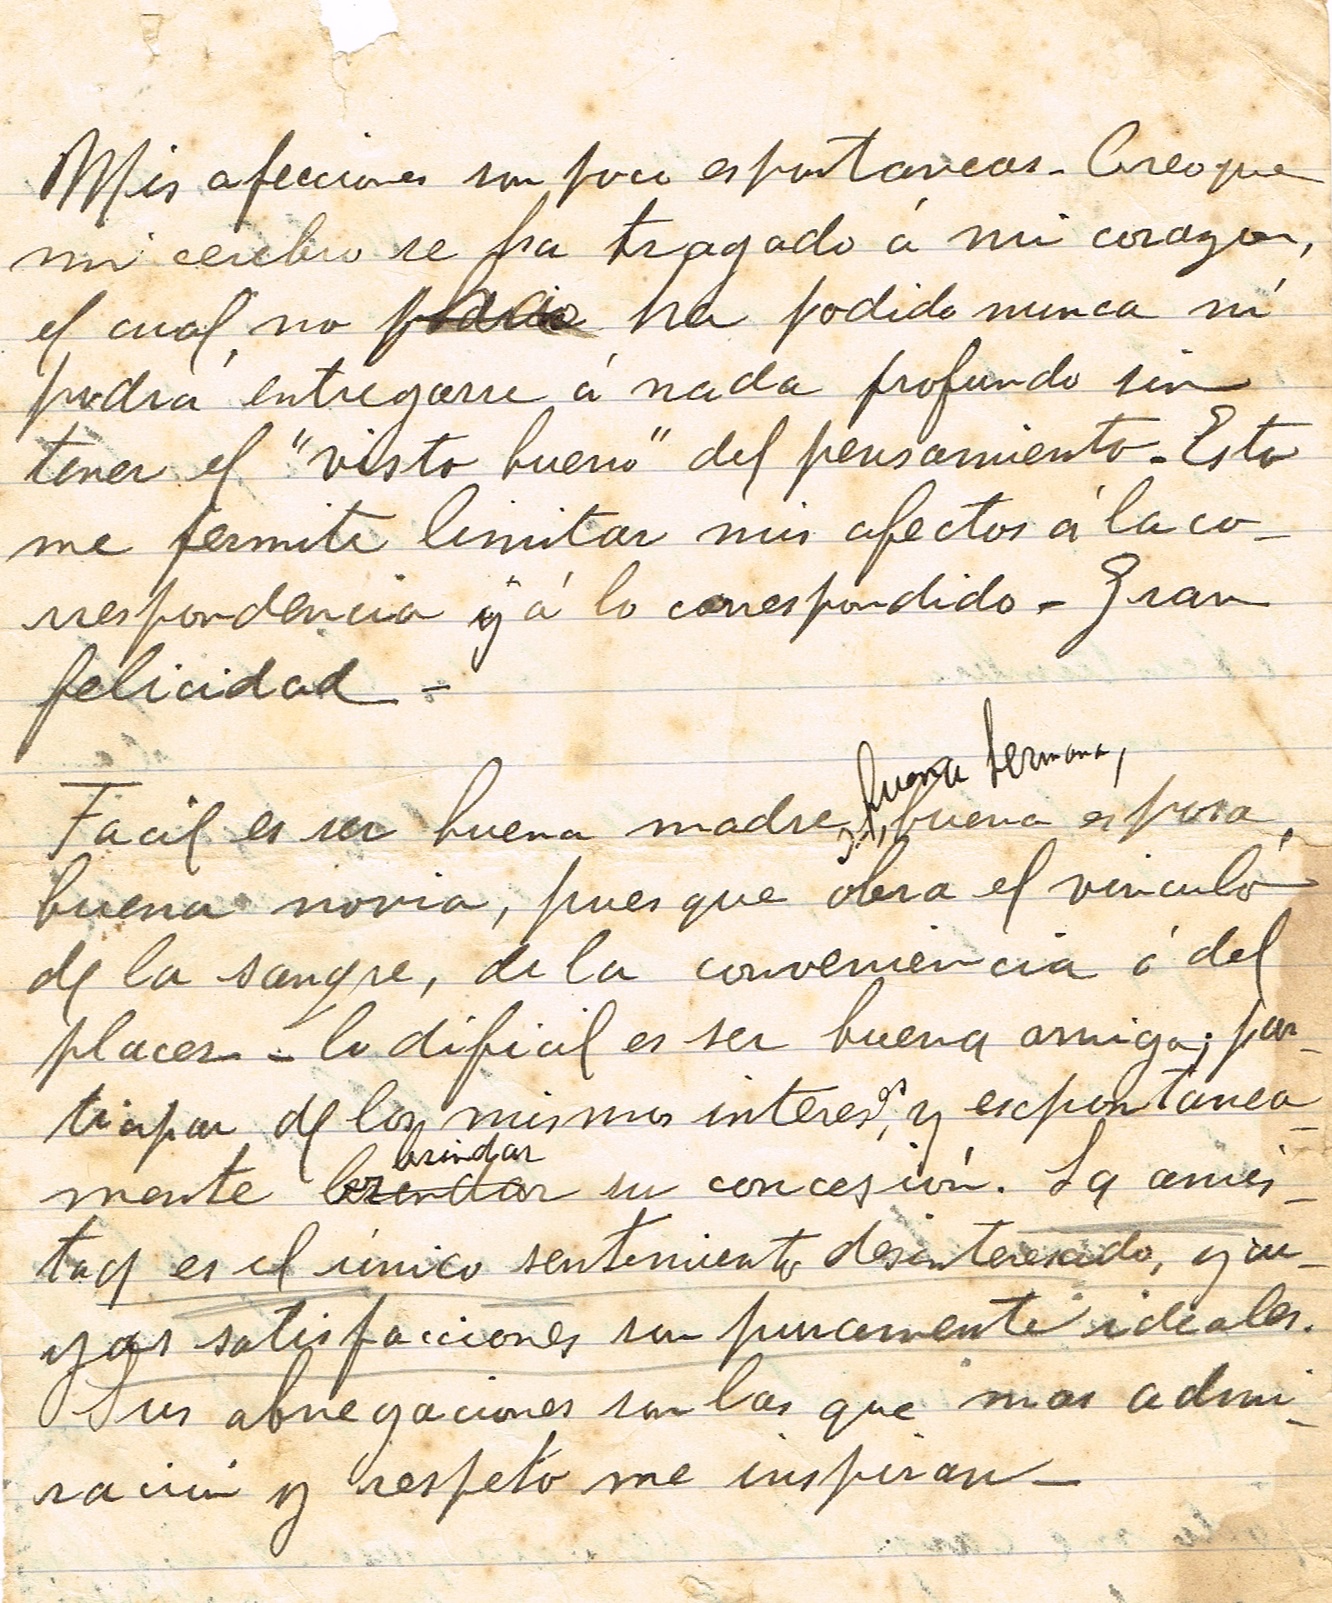 Mis afecciones son poco espontaneas - Creo que
mi cerebro se ha tragado á mi corazon,
el cual no podria ha podido nunca ni
podrá entregarse á nada profundo sin
tener el "visto bueno" del pensamiento - Esto
me permite limitar mis afectos á la co-
rrespondencia y á lo correspondido - Gran
felicidad -
buena hermana,
Facil es ser buena madre, buena esposa,
buena novia, pues que obra el vinculo
de la sangre, de la conveniencia ó del
placer - lo dificil es ser buena amiga; par-
ticipar de los mismos intereses, y expontanea-
brindar
mente brindar su concesión. La amis-
tad es el único sentimiento desinteresado, y cu-
yas satisfacciones son puramente ideales.
Sus abnegaciones son las que mas admi-
ración y respeto me inspiran -